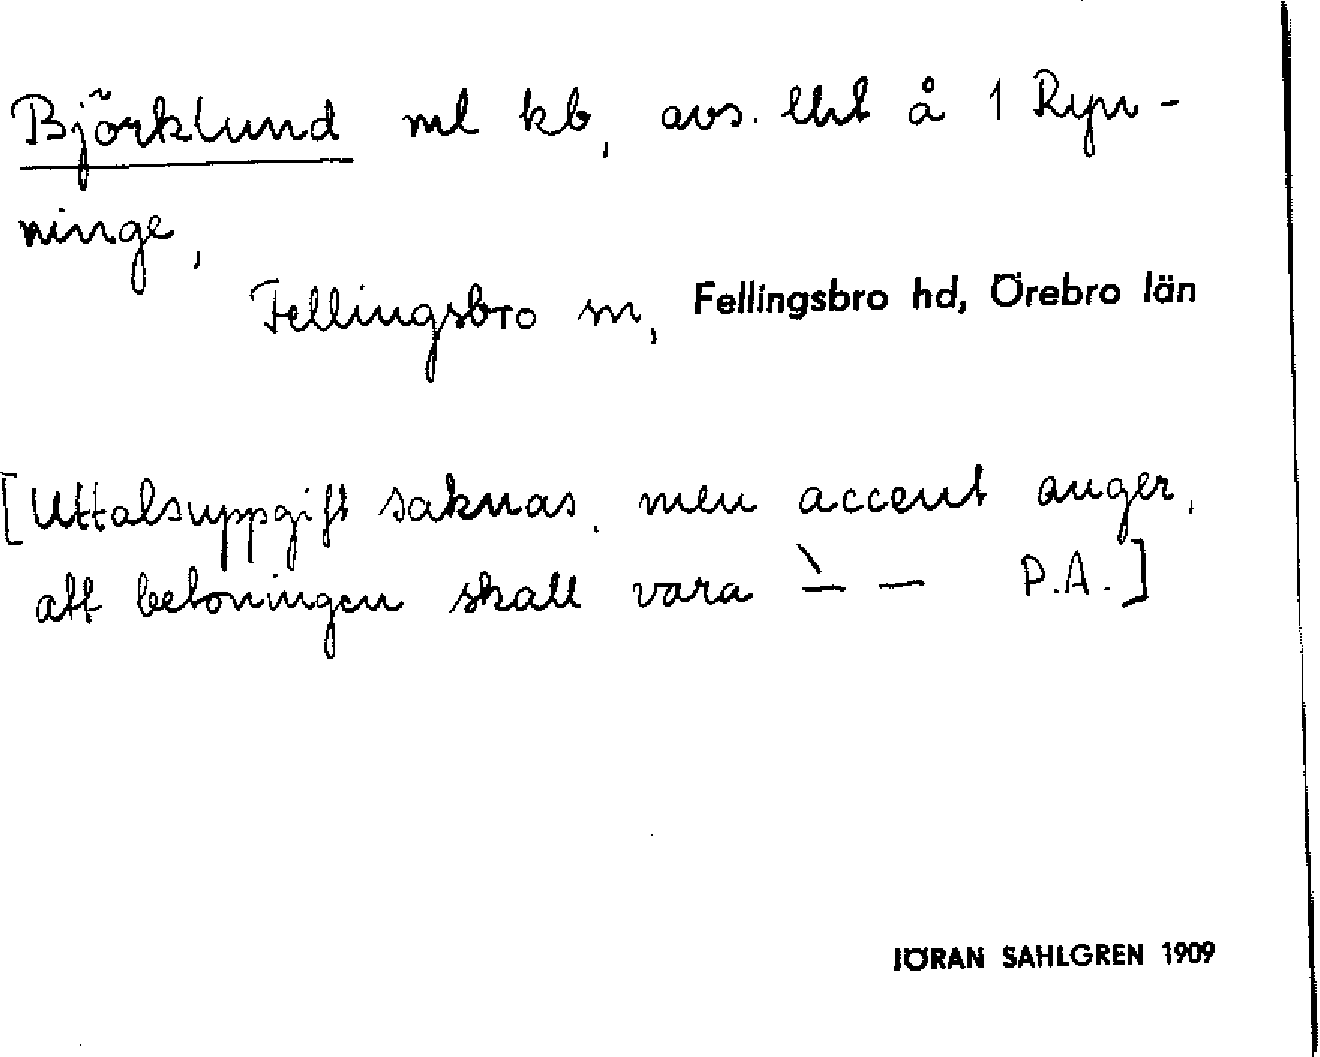 Björklund ml kb, avs. lht å 1 Ryn-
ninge,
Fellingsbro sn, Fellingsbro hd, Örebro län
[Uttalsuppgift saknas, men accent anger,
att betoningen skall vara \— — P.A.]
JÖRAN SAHLGREN 1909